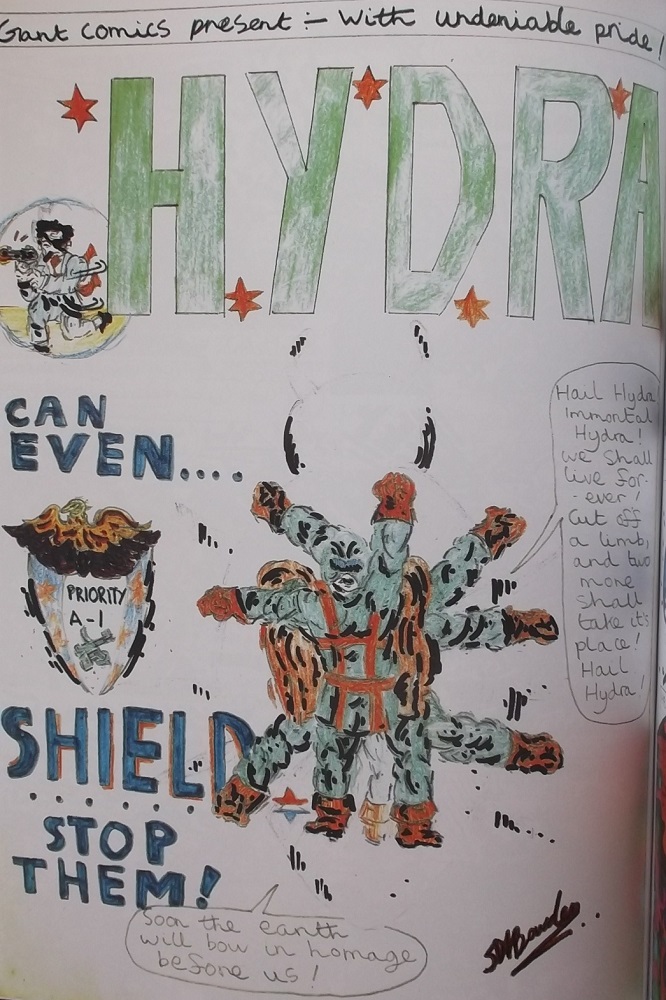 Giant comics present :- With undeniable pride!
HYDRA
CAN
EVEN....
PRIORITY
A-1
SHIELD
.......
STOP
THEM!
Hail Hydra
Immortal
Hydra!
we shall
live for-
-ever!
Cut off
a limb,
and two
more
shall
take it's
place!
Hail
Hydra!
Soon the earth
will bow in homage
before us!